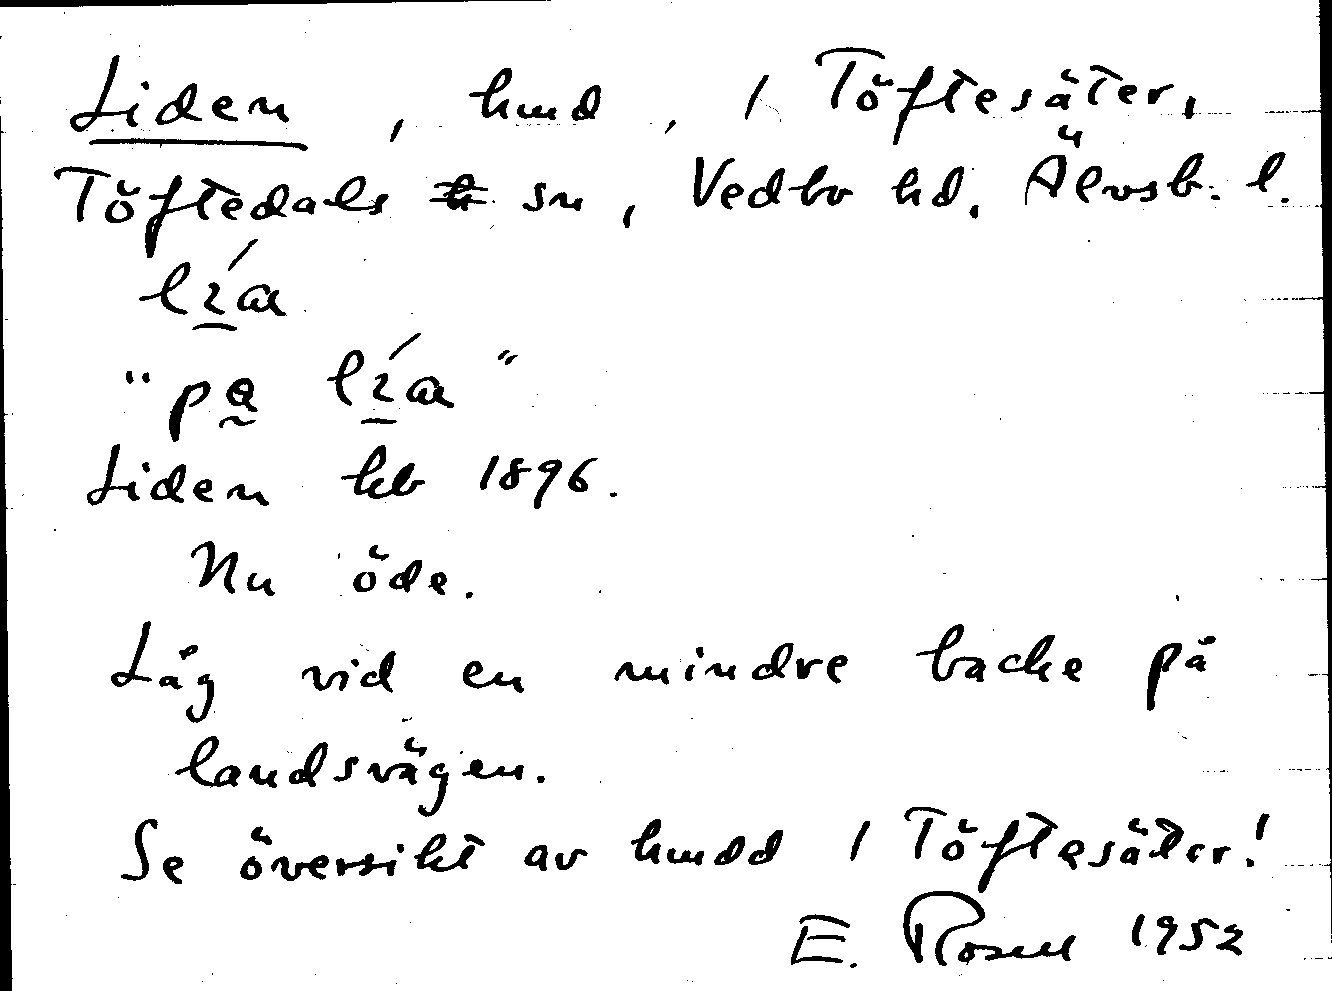 Liden, hmd, 1 Töftesäter,
Töftedals sn, Vedbo hd. Älvsb. l.
Liden kb 1896.
Nu öde.
Låg vid en mindre backe på
landsvägen.
Se översikt av hmdd 1 Töftesäter!
E. Rosell 1952